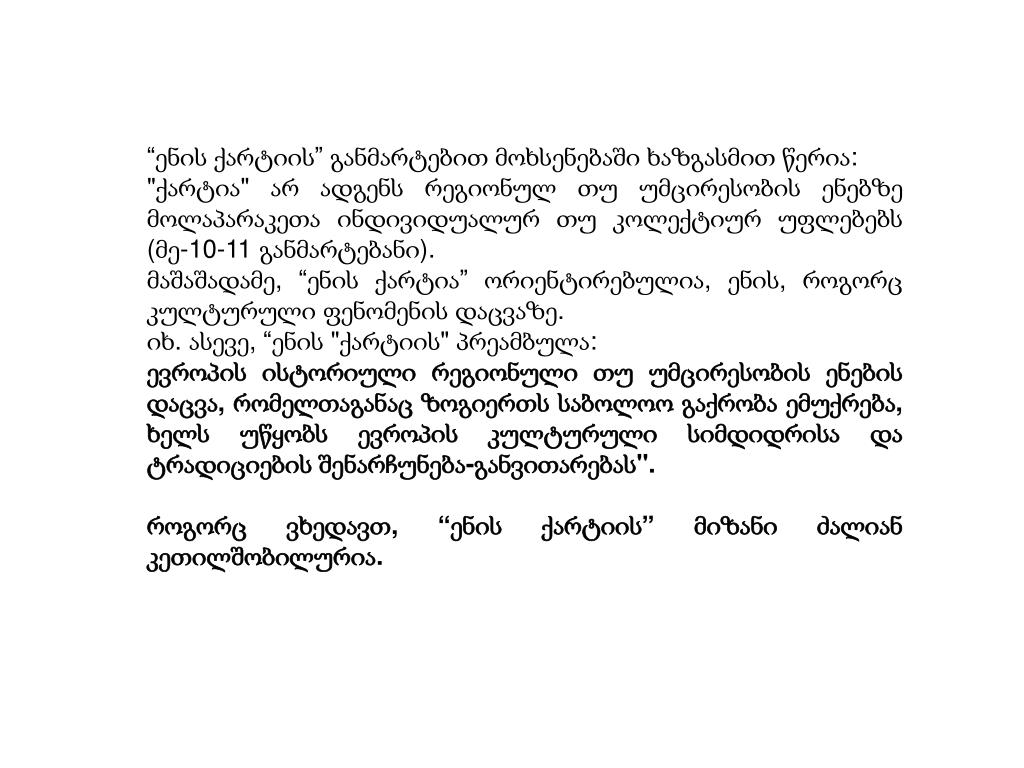 “ენის ქარტიის” განმარტებით მოხსენებაში ხაზგასმით წერია:
"ქარტია" არ ადგენს რეგიონულ თუ უმცირესობის ენებზე
მოლაპარაკეთა ინდივიდუალურ თუ კოლექტიურ უფლებებს
(მე-10-11 განმარტებანი).
მაშაშადამე, “ენის ქარტია” ორიენტირებულია, ენის, როგორც
კულტურული ფენომენის დაცვაზე.
იხ. ასევე, “ენის "ქარტიის" პრეამბულა:
ევროპის ისტორიული რეგიონული თუ უმცირესობის ენების
დაცვა, რომელთაგანაც ზოგიერთს საბოლოო გაქრობა ემუქრება,
ხელს უწყობს ევროპის კულტურული სიმდიდრისა და
ტრადიციების შენარჩუნება-განვითარებას".
როგორც ვხედავთ, “ენის ქარტიის” მიზანი ძალიან
კეთილშობილურია.